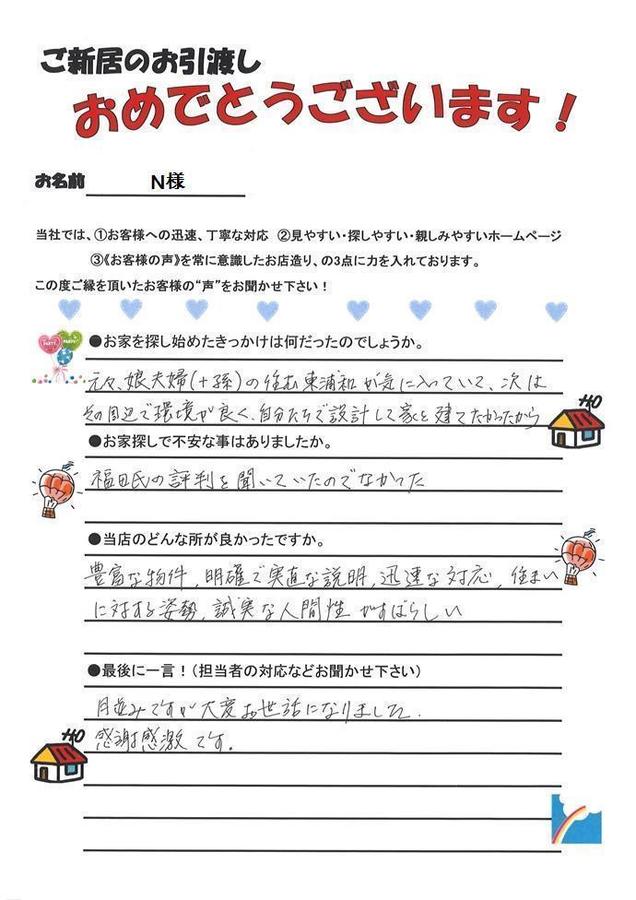 ご新居のお引渡し
おめでとうございます！
お名前 N様
当社では、①お客様への迅速、丁寧な対応 ②見やすい・探しやすい・親しみやすいホームページ
③《お客様の声》を常に意識したお店造り、の3点に力を入れております。
この度ご縁を頂いたお客様の“声”をお聞かせ下さい！
●お家を探し始めたきっかけは何だったのでしょうか。
元々、娘夫婦(+孫)の住む東浦和が気に入っていて、次は
その周辺で環境が良く、自分たちで設計して家を建てたかったから
●お家探しで不安な事はありましたか。
福田氏の評判を聞いていたのでなかった
●当店のどんな所が良かったですか。
豊富な物件、明確で実直な説明、迅速な対応、住まい
に対する姿勢、誠実な人間性がすばらしい
●最後に一言！（担当者の対応などお聞かせ下さい）
月並みですが大変お世話になりました.
感謝感激です。